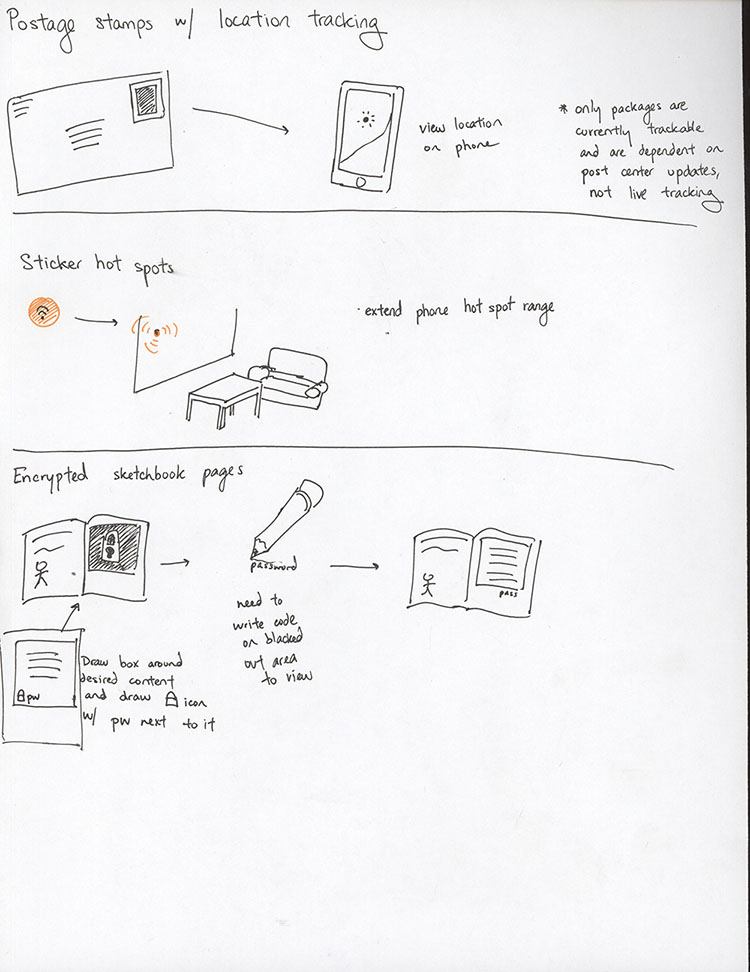 Postage stamps w/ location tracking
view location
on phone
* only packages are
currently trackable
and are dependent on
post center updates,
not live tracking
Sticker hot spots
· extend phone hot spot range
Encrypted sketchbook pages
password
need to
write code
on blacked
out area
to view
pass
pw
Draw box around
desired content
and draw icon
w/ pw next to it